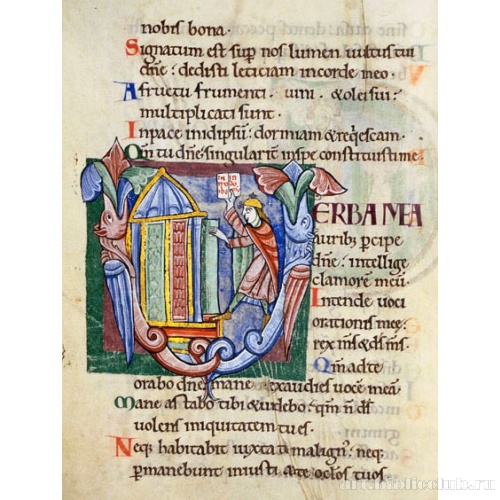 nobis bona.
Signatum est sup nos lumen uultus tui
dñe: dedisti leticiam in corde meo.
A fructu frumenti. uini. & olei sui:
multiplicati sunt.
In pace in idipsū: dormiam & reqescam.
Qm̄ tu dñe singularit̄ in spe constituisti me.
VERBA MEA
aurib; pcipe
dñe: intellige
clamorē meū.
Intende uoci
orationis meę:
rex m̄s & d̄s m̄s.
Qm̄ ad te
orabo dñe: mane exaudies uocē meā.
Mane astabo tibi & uidebo: qm̄ n̄ d̄s
uolens iniquitatem tu es.
Neq; habitabit iuxta te malign': neq;
pmanebunt iniusti ante oclos tuos.
art.biblioclub.ru